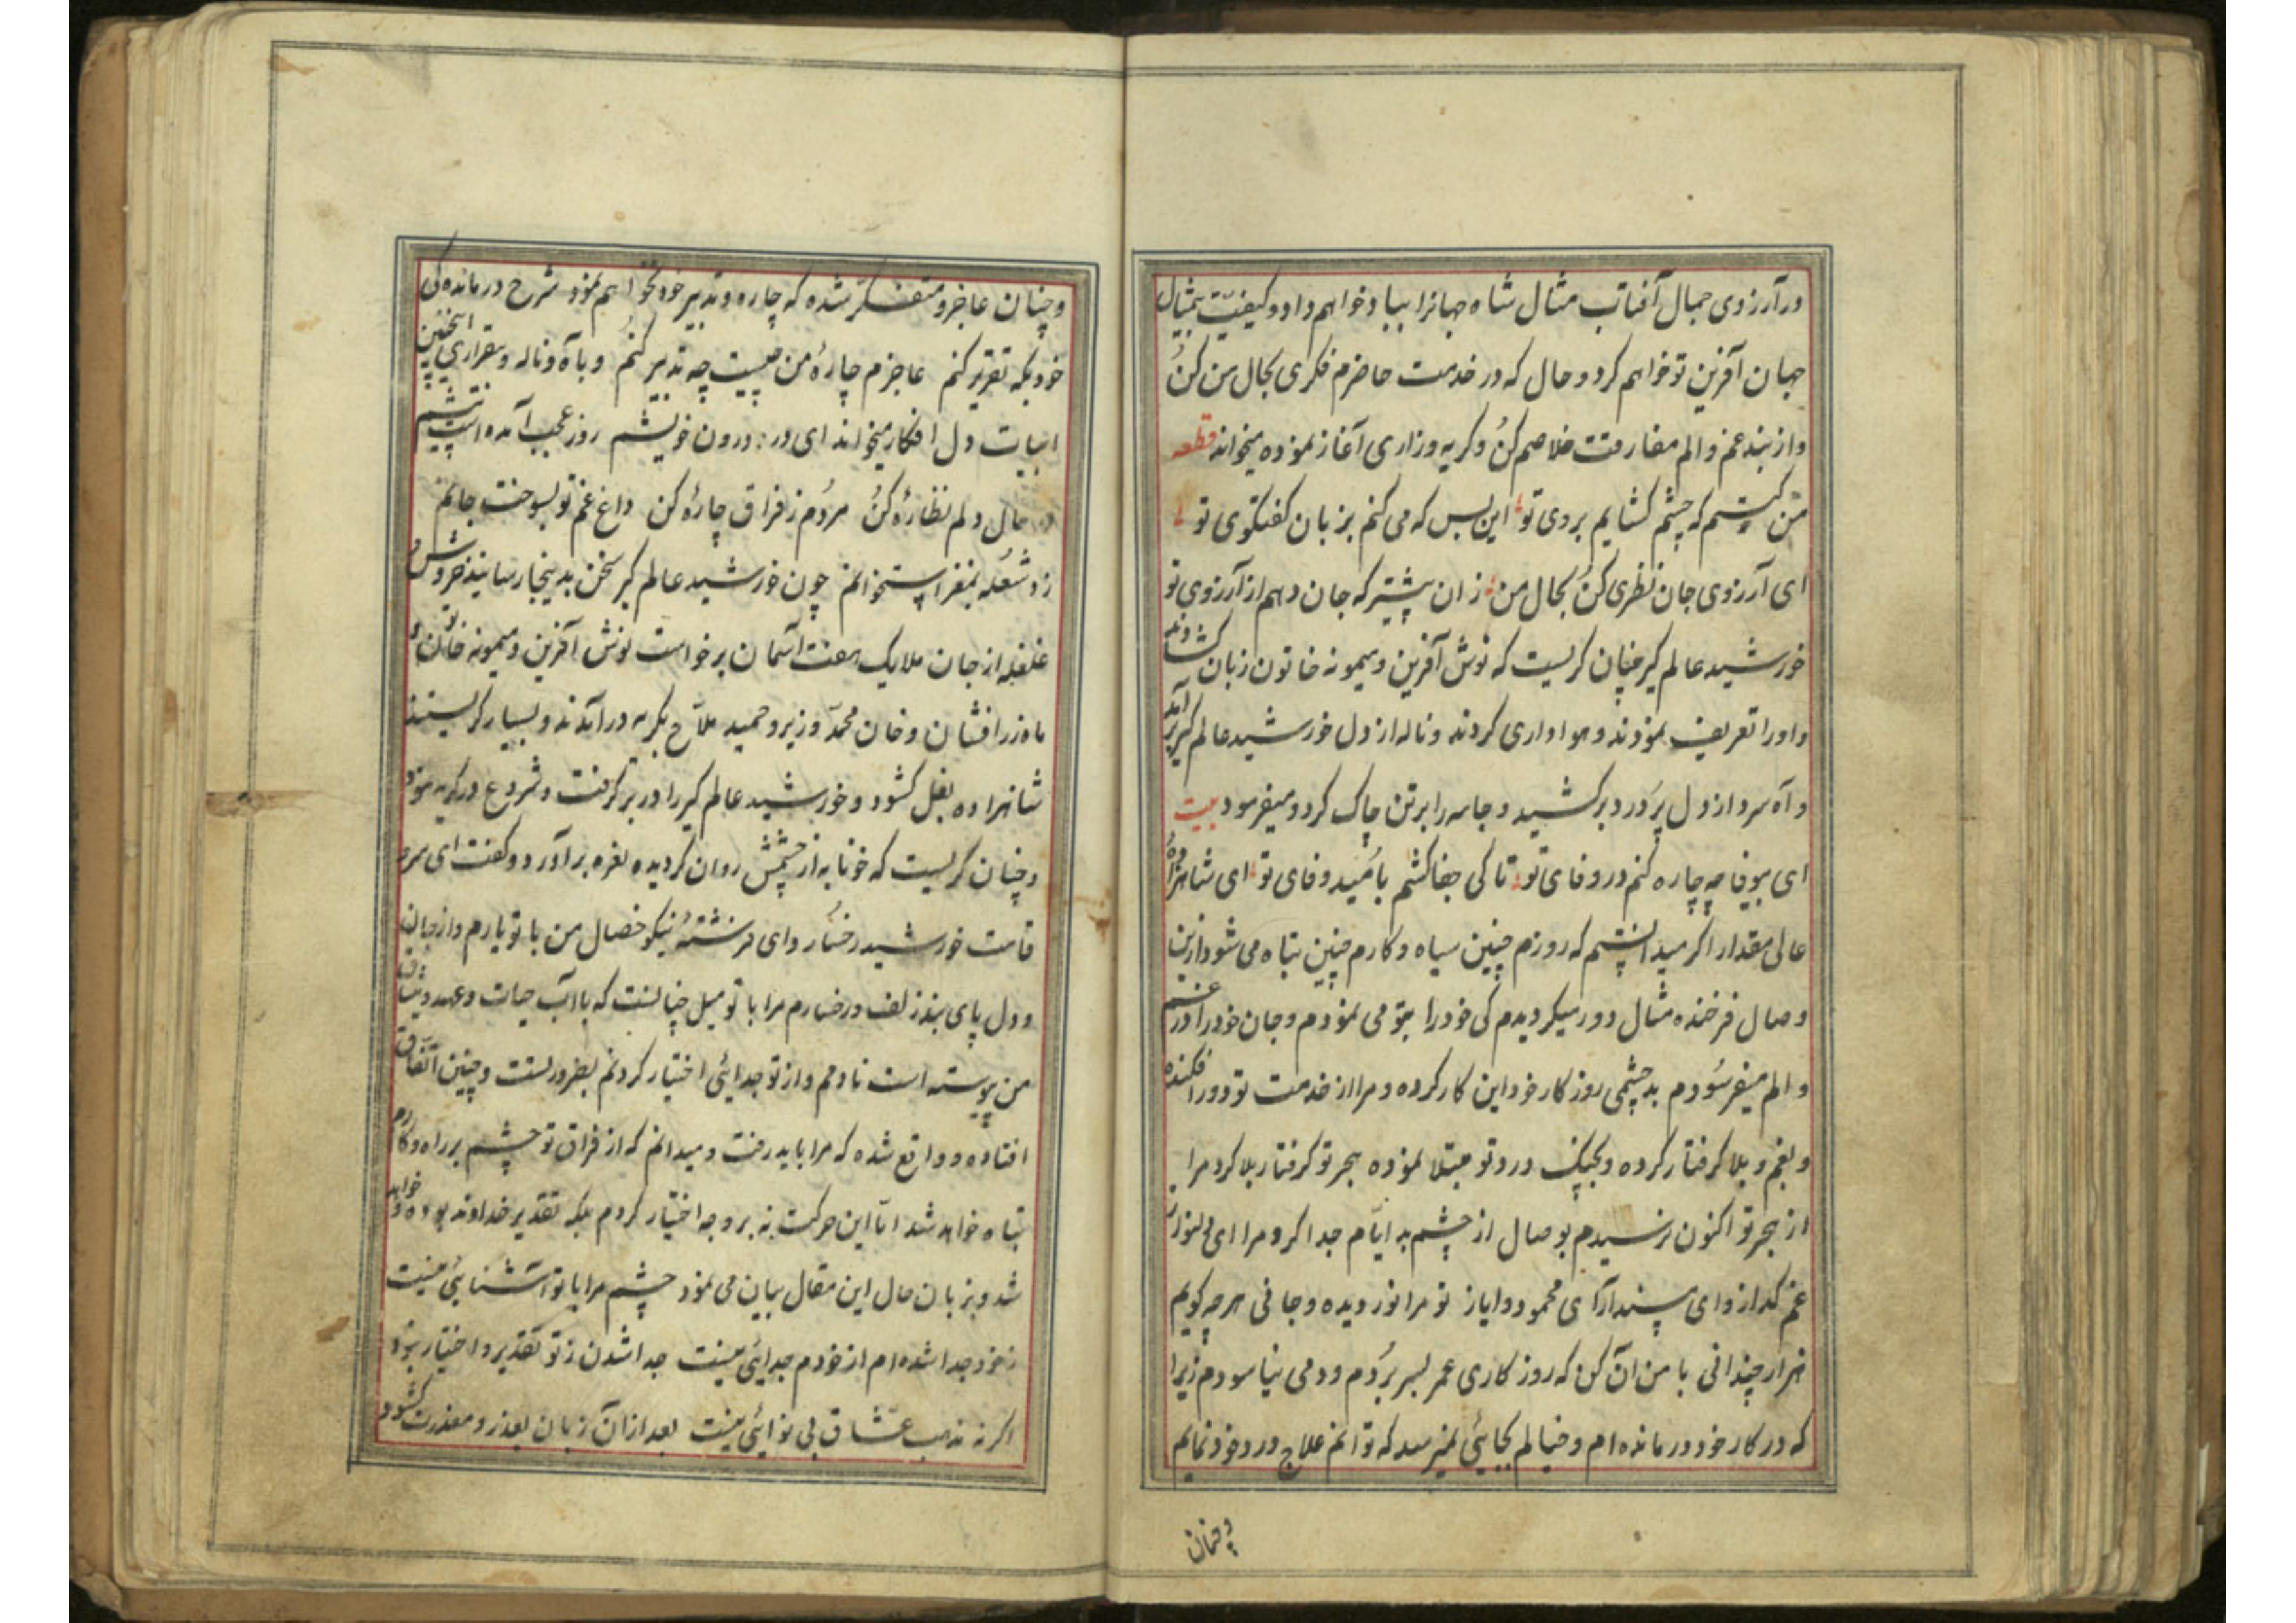 در آرزوی جمال آفتاب مثال شاه جهانرا بباد خواهم داد و کیفیت بمثال
جهان آفرین تو خواهم کرد و حال که در خدمت حاضرم فکری بحال من کن
و از بند غم و الم مفارقت خلاصم کن و کریه و زاری آغاز نموده میخواند قطعه
من کیستم که چشم کشایم بروی تو این بس که می کنم بزبان کفتکوی تو
ای آرزوی جان نظری کن بحال من زان پیشتر که جان دهم از آرزوی تو
خورشید عالم کیر چنان کریست که نوش آفرین و میمونه خاتون زبان کشادند
و او را تعریف نمودند و هواداری کردند و ناله از دل خورشید عالم کیر بر آمد
و آه سرد از دل پردرد برکشید و جامه را بر تن چاک کرد و میفرمود بیت
ای بیوفا چه چاره کنم در وفای تو تا کی جفا کشم بامید وفای تو ای شاهزاده
عالی مقدار اکر میدانستم که روزم چنین سیاه و کارم چنین تباه می شود از این
وصال فرخنده مثال دور میکردیدم کی خود را بتو می نمودم و جان خود را در غم
و الم میفرسودم بد چشمی روزکار خود این کار کرده و مرا از خدمت تو دور افکنده
و بغم و بلا کرفتار کرده و بچنک درد تو مبتلا نموده بهجر تو کرفتار بلا کرد مرا
از هجر تو اکنون نرسیدم بوصال از چشم بد ایام جدا کرد مرا ای دلنواز
غم کداز و ای پسندآرای محمود و ایاز تو مرا نور دیده و جانی هر چه کویم
هزار چندانی با من آن کن که روزکاری عمر بسر بردم و دمی نیاسودم زیرا
که در کار خود درمانده ام و خیالم بجائی نمیرسد که توانم علاج درد خود نمایم
وچنان
و چنان عاجز و متفکر شده که چاره و تدبیر خود نخواهم نمود شرح درمانده کی
خود بکه تقریر کنم عاجزم چارهٔ من چیست چه تدبیر کنم و با آه و ناله و بیقراری اینچنین
ابیات دل افکار میخواند ای در درون خویشم روز عجب آمده است پیشم
در حال دلم نظارهٔ کن مردم ز فراق چارهٔ کن داغ غم تو بسوخت جانم
زد شعله بمغز استخوانم چون خورشید عالم کیر سخن بدینجا رسانید خروش و
غلغله از جان ملایک هفت آسمان برخواست نوش آفرین و میمونه خاتون و
ماه زرافشان و خان محمد وزیر و حمید ملاح بکریه در آمدند و بسیار کریستند
شاهزاده بغل کشود و خورشید عالم کیر را در بر کرفت و شروع در کریه نمود
و چنان کریست که خونابه از چشمش روان کردیده نعره برآورد و کفت ای سرو
قامت خورشید رخسار و ای فرشتهٔ نیکو خصال من با تو یارم و از جان
و دل پای بند زلف و رخسارم مرا با تو میل چنانست که با آب حیات و عهد و میثاق
من پیوسته است نادمم و از تو جدائی اختیار کردنم بضرورتست و چنین اتفاق
افتاده و واقع شده که مرا باید رفت و میدانم که از فراق تو چشم بر راه و کارم
تباه خواهد شد اما این حرکت نه بر وجه اختیار کردم بلکه تقدیر خداوند بوده و خواهد
شد و بزبان حال این مقال بیان می نمود چشم مرا با تو آشنائی نیست
ز خود جدا شده ام از خودم جدائی نیست جدا شدن ز تو تقدیر و اختیار نبود
اکرنه مذهب عشاق بی نوائی نیست بعد از آن زبان بعذر و معذرت کشود